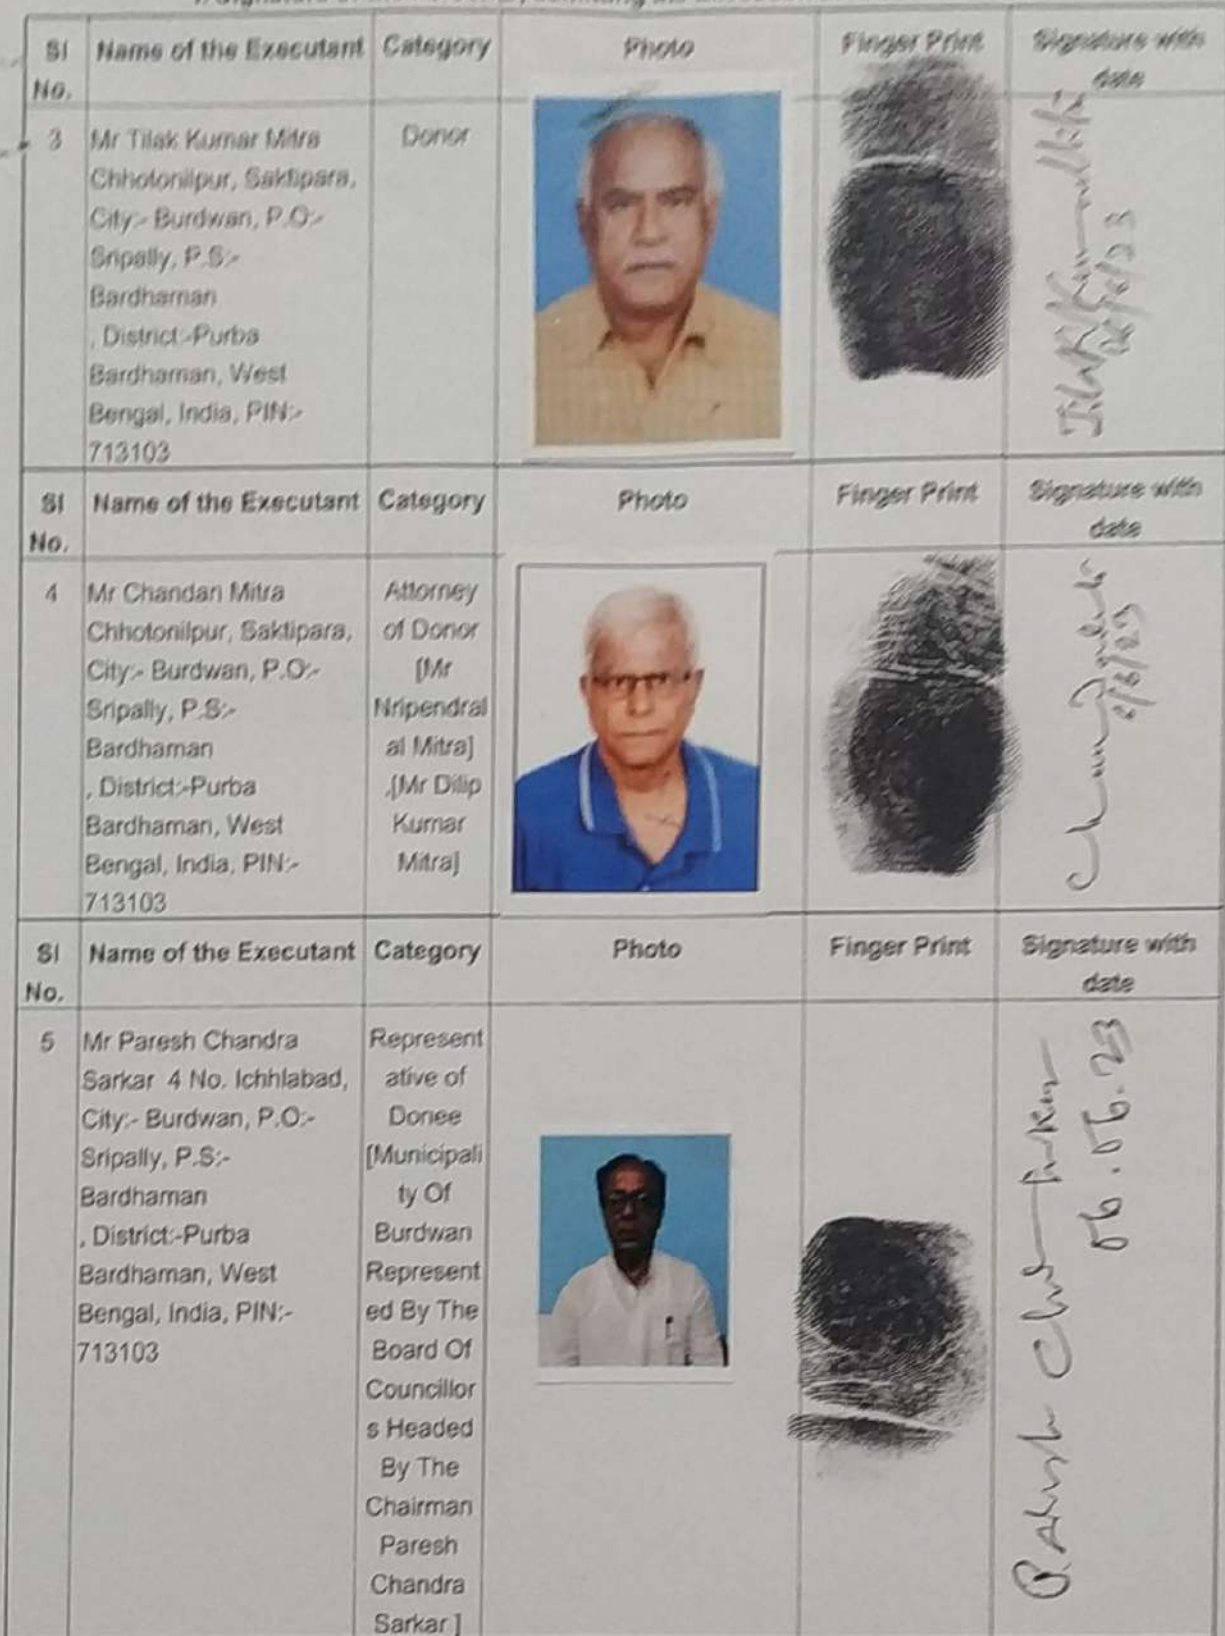 Sl No. Name of the Executant Category Photo Finger Print Signature with date
3 Mr Tilak Kumar Mitra Donor
Chhotonilpur, Saktipara,
City:- Burdwan, P.O:-
Sripally, P.S:-
Bardhaman
, District:-Purba
Bardhaman, West
Bengal, India, PIN:-
713103
Sl No. Name of the Executant Category Photo Finger Print Signature with date
4 Mr Chandan Mitra
Chhotonilpur, Saktipara,
City:- Burdwan, P.O:-
Sripally, P.S:-
Bardhaman
, District:-Purba
Bardhaman, West
Bengal, India, PIN:-
713103
Attorney
of Donor
[Mr
Nripendral
al Mitra]
,[Mr Dilip
Kumar
Mitra]
6/6/23
Sl No. Name of the Executant Category Photo Finger Print Signature with date
5 Mr Paresh Chandra
Sarkar 4 No. Ichhlabad,
City:- Burdwan, P.O:-
Sripally, P.S:-
Bardhaman
, District:-Purba
Bardhaman, West
Bengal, India, PIN:-
713103
Represent
ative of
Donee
[Municipali
ty Of
Burdwan
Represent
ed By The
Board Of
Councillor
s Headed
By The
Chairman
Paresh
Chandra
Sarkar ]
06.06.23